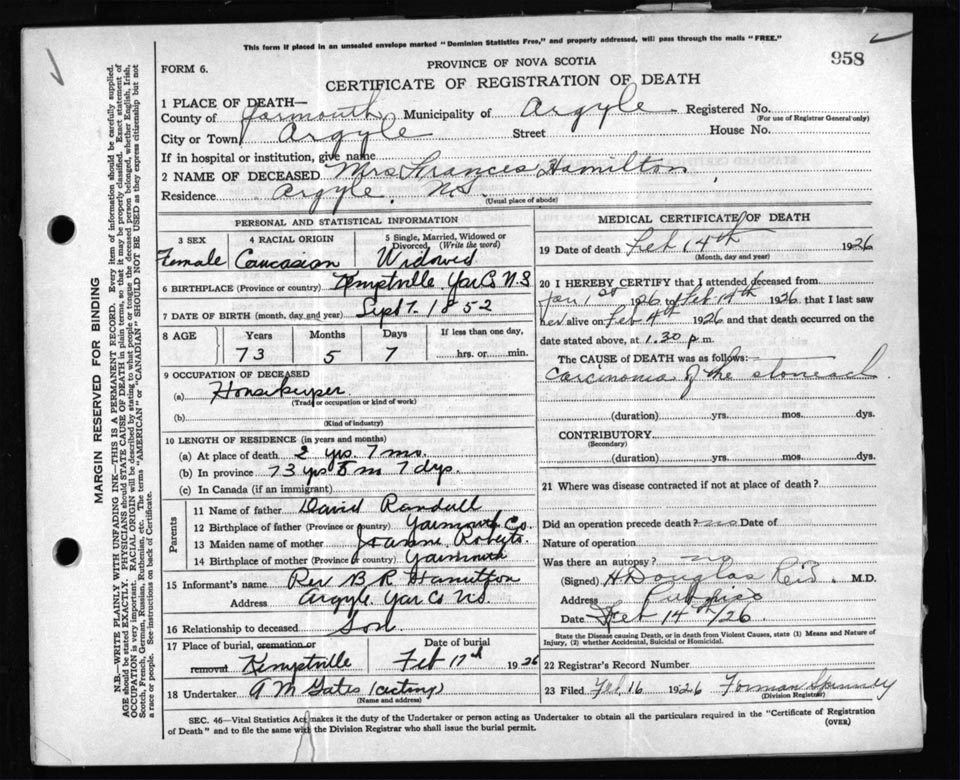 This form if placed in an unsealed envelope marked "Dominion Statistics Free," and properly addressed, will pass through the mails "FREE."
958
FORM 6.
PROVINCE OF NOVA SCOTIA
CERTIFICATE OF REGISTRATION OF DEATH
1 PLACE OF DEATH—
County of Yarmouth Municipality of Argyle Registered No.
(For use of Registrar General only)
City or Town Argyle Street House No.
If in hospital or institution, give name
2 NAME OF DECEASED Mrs Frances Hamilton
Residence Argyle. N.S.
(Usual place of abode)
PERSONAL AND STATISTICAL INFORMATION
3 SEX 4 RACIAL ORIGIN 5 Single, Married, Widowed or Divorced, (Write the word)
Female Caucasian Widowed
6 BIRTHPLACE (Province or country) Kemptville Yar Co N.S
7 DATE OF BIRTH (month, day and year) Sept 7 1852
8 AGE Years Months Days If less than one day,
73 5 7 hrs. or min.
9 OCCUPATION OF DECEASED
(a) Housekeeper
(Trade or occupation or kind of work)
(b)
(Kind of industry)
10 LENGTH OF RESIDENCE (in years and months)
(a) At place of death 2 yrs. 7 mo.
(b) In province 73 yrs 5 m 7 dys.
(c) In Canada (if an immigrant)
Parents
11 Name of father David Randall
12 Birthplace of father (Province or country) Yarmouth Co.
13 Maiden name of mother Joanne Roberts.
14 Birthplace of mother (Province or country) Yarmouth
15 Informant's name Rev B R Hamilton
Address Argyle Yar Co N.S.
16 Relationship to deceased Son
17 Place of burial, cremation or removal Kemptville
Date of burial Feb 17th 1926
18 Undertaker A M Gates (acting)
(Name and address)
MEDICAL CERTIFICATE OF DEATH
19 Date of death Feb 14th 1926
(Month, day and year)
20 I HEREBY CERTIFY that I attended deceased from
Jan 1st 1926 to Feb 14th 1926. that I last saw
her alive on Feb 4th 1926 and that death occurred on the
date stated above, at 1.30 p.m.
The CAUSE of DEATH was as follows:
Carcinoma of the stomach
(duration) yrs. mos. dys.
CONTRIBUTORY
(Secondary)
(duration) yrs. mos. dys.
21 Where was disease contracted if not at place of death?
Did an operation precede death? no Date of
Nature of operation
Was there an autopsy? no
(Signed) H Douglas Reid. M.D.
Address Pubnico
Date Feb 14th/26
State the Disease causing Death, or in death from Violent Causes, state (1) Means and Nature of
Injury, (2) whether Accidental, Suicidal or Homicidal.
22 Registrar's Record Number
23 Filed Feb 16 1926 Forman Spinney
(Division Registrar)
SEC. 46—Vital Statistics Act makes it the duty of the Undertaker or person acting as Undertaker to obtain all the particulars required in the "Certificate of Registration
of Death" and to file the same with the Division Registrar who shall issue the burial permit.
(OVER)
MARGIN RESERVED FOR BINDING
N.B.—WRITE PLAINLY WITH UNFADING INK—THIS IS A PERMANENT RECORD. Every item of information should be carefully supplied.
AGE should be stated EXACTLY. PHYSICIANS should STATE CAUSE OF DEATH in plain terms, so that it may be properly classified. Exact statement of
OCCUPATION is very important. RACIAL ORIGIN will be described by stating to what people or race the deceased person belonged, whether English, Irish,
Scotch, French, German, Russian, Ruthenian, etc. The terms "AMERICAN" or "CANADIAN" SHOULD NOT BE USED as they express citizenship but not
a race or people. See instructions on back of Certificate.